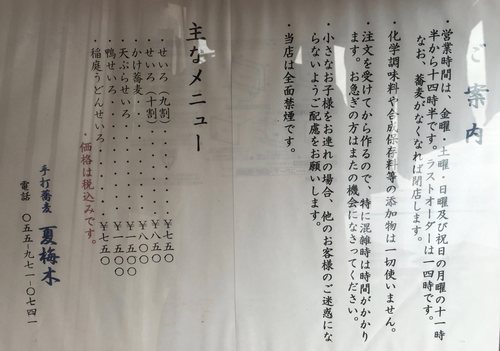 ご案内
・営業時間は、金曜・土曜・日曜及び祝日の月曜の十一時
半から十四時半です。ラストオーダーは一四時です。
なお、蕎麦がなくなれば閉店します。
・化学調味料や合成保存料等の添加物は一切使いません。
・注文を受けてから作るので、特に混雑時は時間がかかり
ます。お急ぎの方はまたの機会になさってください。
・小さなお子様をお連れの場合、他のお客様のご迷惑にな
らないようご配慮をお願いします。
・当店は全面禁煙です。
主なメニュー
・せいろ（九割）・・・・・・￥七五〇
・せいろ（十割）・・・・・・￥八五〇
・かけ蕎麦・・・・・・・・￥八〇〇
・天ぷらせいろ・・・・・・￥一五〇〇
・鴨せいろ・・・・・・・・￥一五〇〇
・稲庭うどんせいろ・・・・￥七五〇
・価格は税込みです。
手打蕎麦 夏梅木
電話 〇五五-九七一-〇七四一